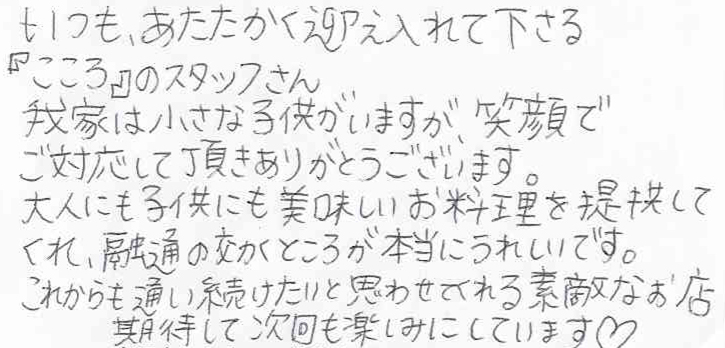 いつも、あたたかく迎え入れて下さる
『こころ』のスタッフさん
我家は小さな子供がいますが、笑顔で
ご対応して頂きありがとうございます。
大人にも子供にも美味しいお料理を提供して
くれ、融通の交かくところが本当にうれしいです。
これからも通い続けたいと思わせてくれる素敵なお店
期待して次回も楽しみにしています♡